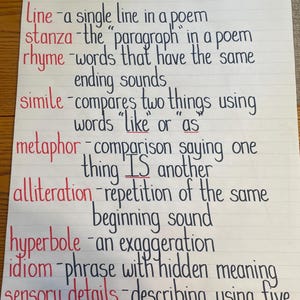 line - a single line in a poem
stanza - the "paragraph" in a poem
rhyme - words that have the same
ending sounds
simile - compares two things using
words "like" or "as"
metaphor - comparison saying one
thing IS another
alliteration - repetition of the same
beginning sound
hyperbole - an exaggeration
idiom - phrase with hidden meaning
sensory details - describing using five